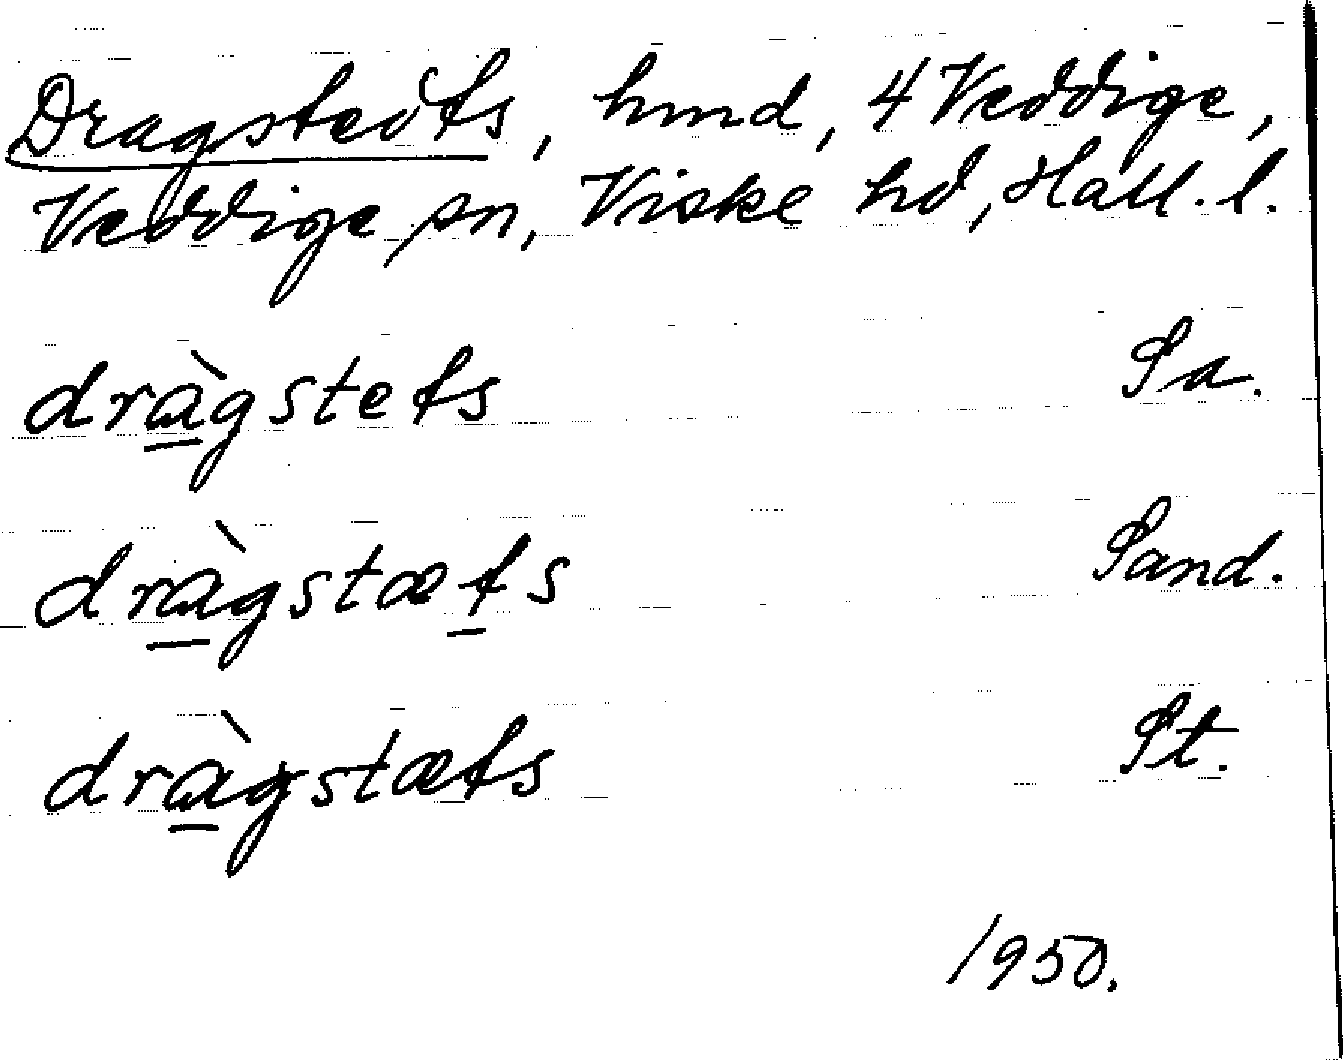 Dragstedts, hmd, 4 Veddige,
Veddige sn, Viske hd, Hall. l.
drà̲gstets Sa.
drà̲gstæt̲s Sand.
drà̲gstæts St.
1950.